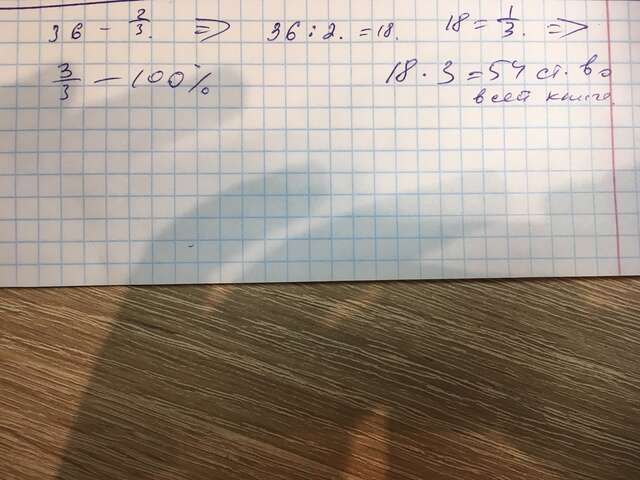 36 - 2/3. => 36 : 2. = 18. 18 = 1/3. =>
3/3 - 100% 18 · 3 = 54 ст. во
всей книге.